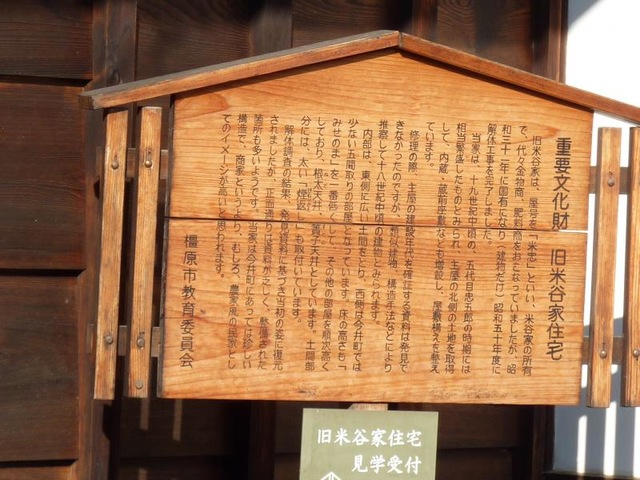 重要文化財　旧米谷家住宅
旧米谷家は、屋号を「米忠」といい、米谷家の所有
で、代々金物商、肥料商をおこなっていましたが、昭
和三十一年に国有になり（建物だけ）昭和五十年度に
解体工事を完了しました。
当家は、十九世紀中頃の、五代目忠五郎の時期には
相当繁盛したものとみられ、主屋の北側の土地を取得
して、内蔵、蔵前座敷なども増設し、屋敷構えを整え
ています。
修理の際、主屋の建設年代を確証する資料は発見で
きなかったのですが、類似建物、構造手法などにより
推察して十八世紀中頃の建物とみられます。
内部は、東側に広い土間をとり、西側は今井町では
少ない五間取りの部屋となっています。床の高さも「
みせのま」を一番低くして、その他の部屋を順次高く
しており、根太天井、簀子天井としています。土間部
分には、太い「煙返し」も取付いています。
解体調査の結果、発見資料に基づき当初の姿に復元
されましたが、正面通りは資料が乏しく、整備された
箇所も多いようです。当家は今井町にあっては珍しい
構造で、商家というより、むしろ、農家風の民家とし
てのイメージが高いと思われます。
橿原市教育委員会
旧米谷家住宅
見学受付